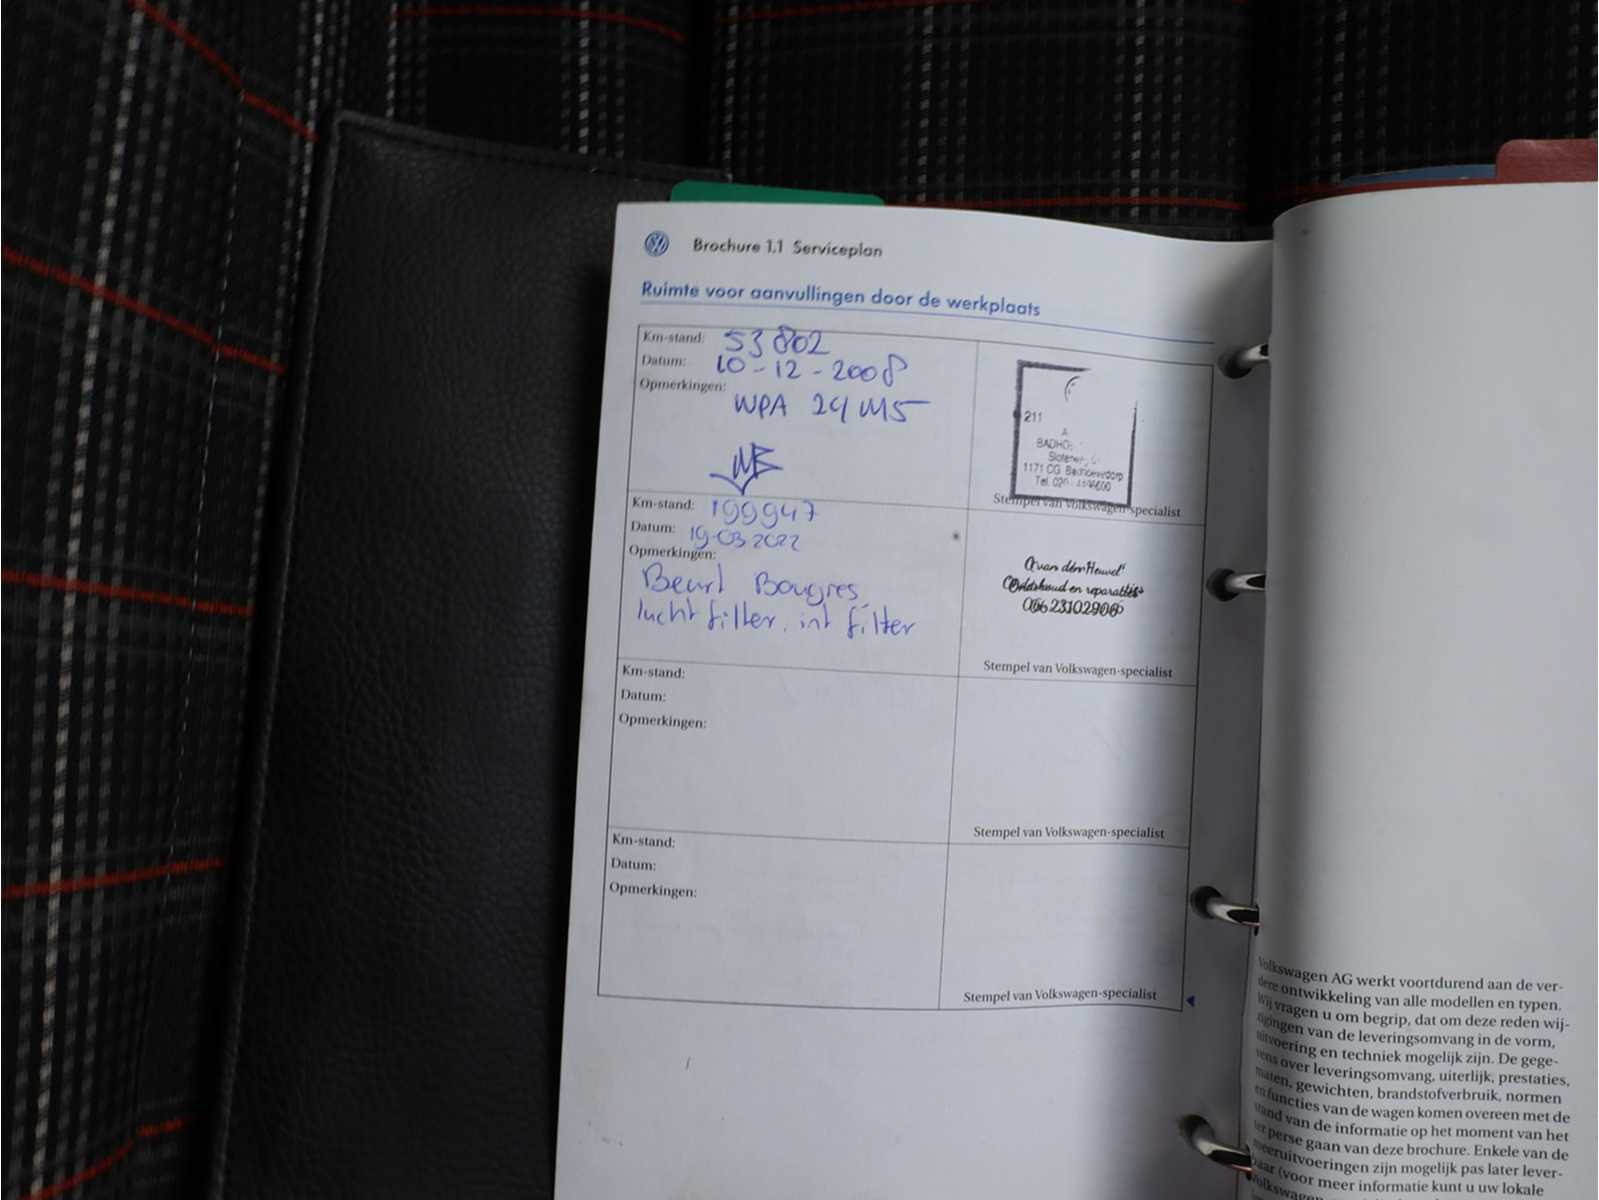 Brochure 1.1 Serviceplan
Ruimte voor aanvullingen door de werkplaats
Km-stand: 53802
Datum: 10-12-2008
Opmerkingen:
WPA 24 MS
211
BADHO
1171 CG Badhoevedorp
Tel. 020
Stempel van Volkswagen-specialist
Km-stand: 199947
Datum: 19-03 2022
Opmerkingen:
Beurt Bougies,
lucht filter, int filter
van den Heuvel
Onderhoud en reparaties
0623102906
Stempel van Volkswagen-specialist
Km-stand:
Datum:
Opmerkingen:
Stempel van Volkswagen-specialist
Km-stand:
Datum:
Opmerkingen:
Stempel van Volkswagen-specialist
Volkswagen AG werkt voortdurend aan de ver-
dere ontwikkeling van alle modellen en typen.
Wij vragen u om begrip, dat om deze reden wij-
zigingen van de leveringsomvang in de vorm,
uitvoering en techniek mogelijk zijn. De gege-
vens over leveringsomvang, uiterlijk, prestaties,
maten, gewichten, brandstofverbruik, normen
en functies van de wagen komen overeen met de
stand van de informatie op het moment van het
ter perse gaan van deze brochure. Enkele van de
meeruitvoeringen zijn mogelijk pas later lever-
baar (voor meer informatie kunt u uw lokale
Volkswagen